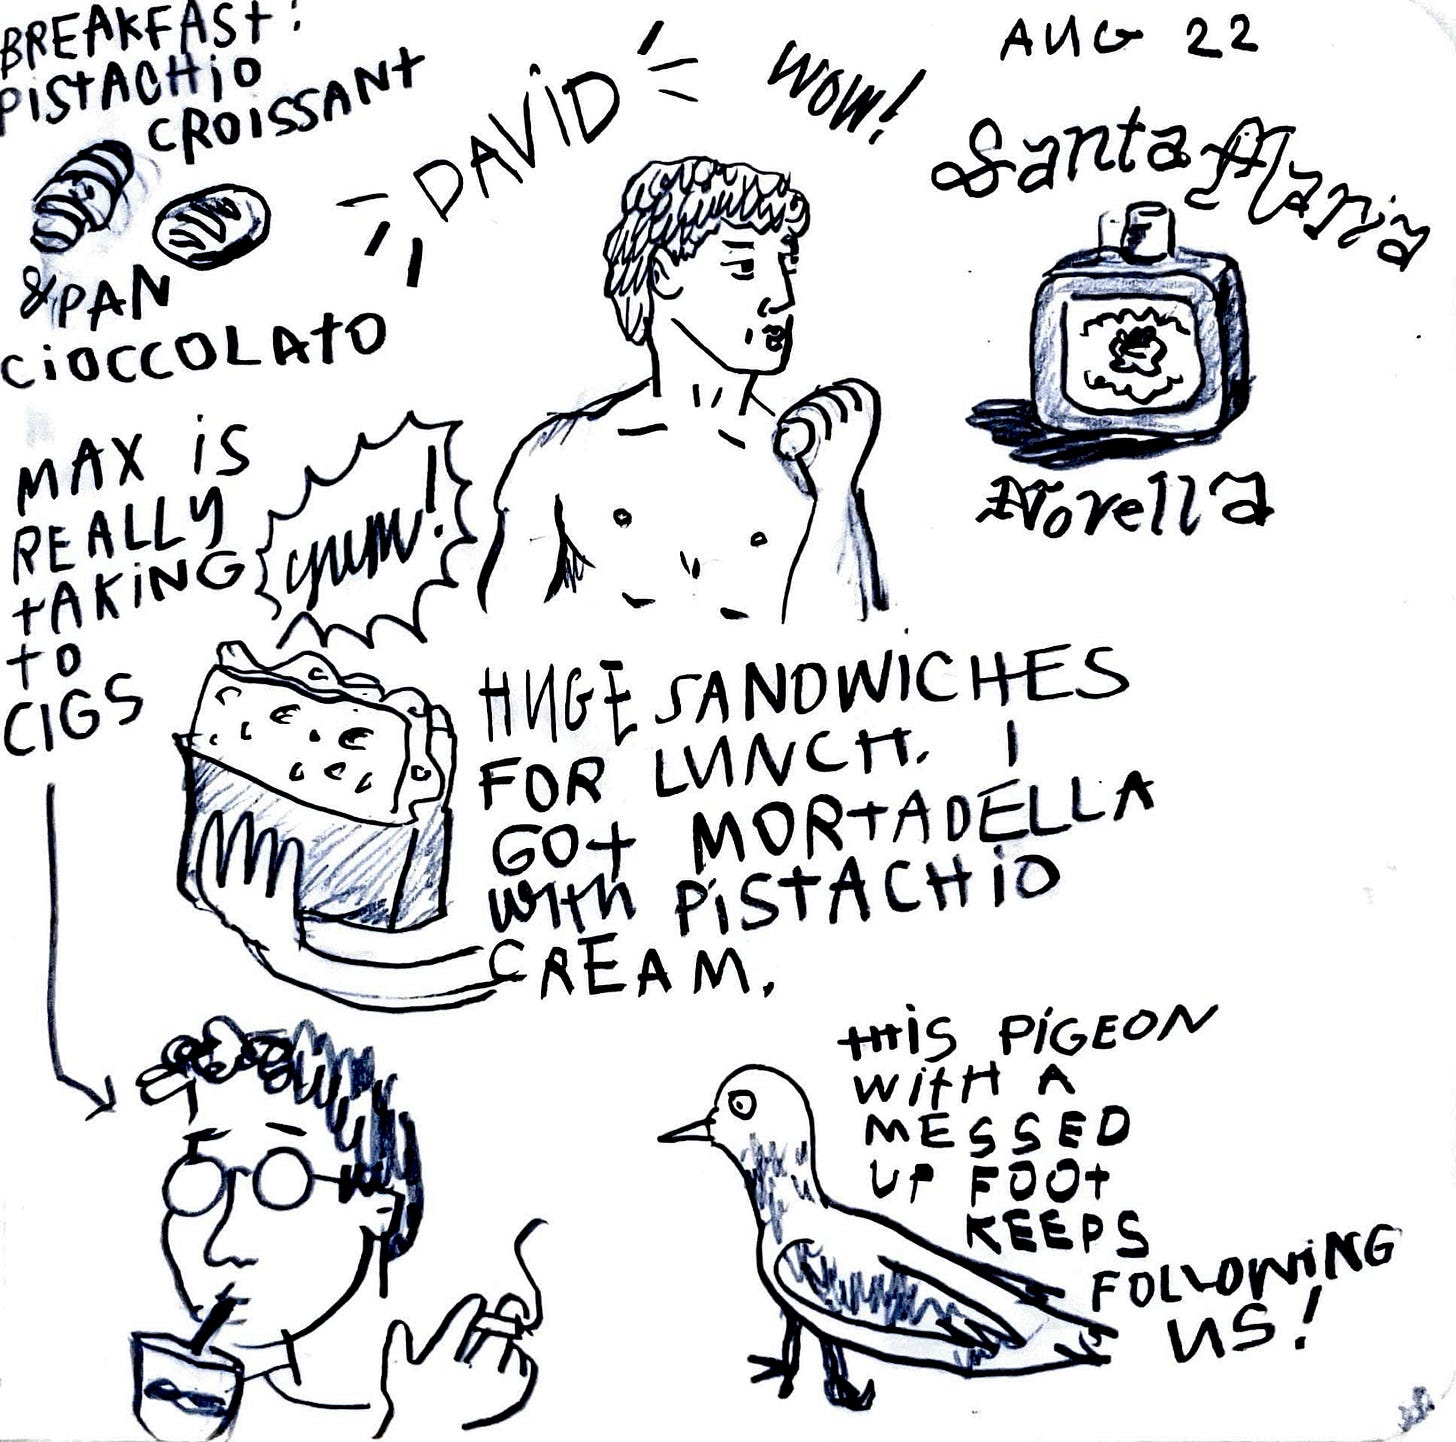 BREAKFAST:
PISTACHIO
CROISSANT
& PAN
CIOCCOLATO
DAVID
WOW!
AUG 22
Santa Maria
Novella
MAX IS
REALLY
TAKING
TO
CIGS
yum!
HUGE SANDWICHES
FOR LUNCH. I
GOT MORTADELLA
WITH PISTACHIO
CREAM.
THIS PIGEON
WITH A
MESSED
UP FOOT
KEEPS
FOLLOWING
US!